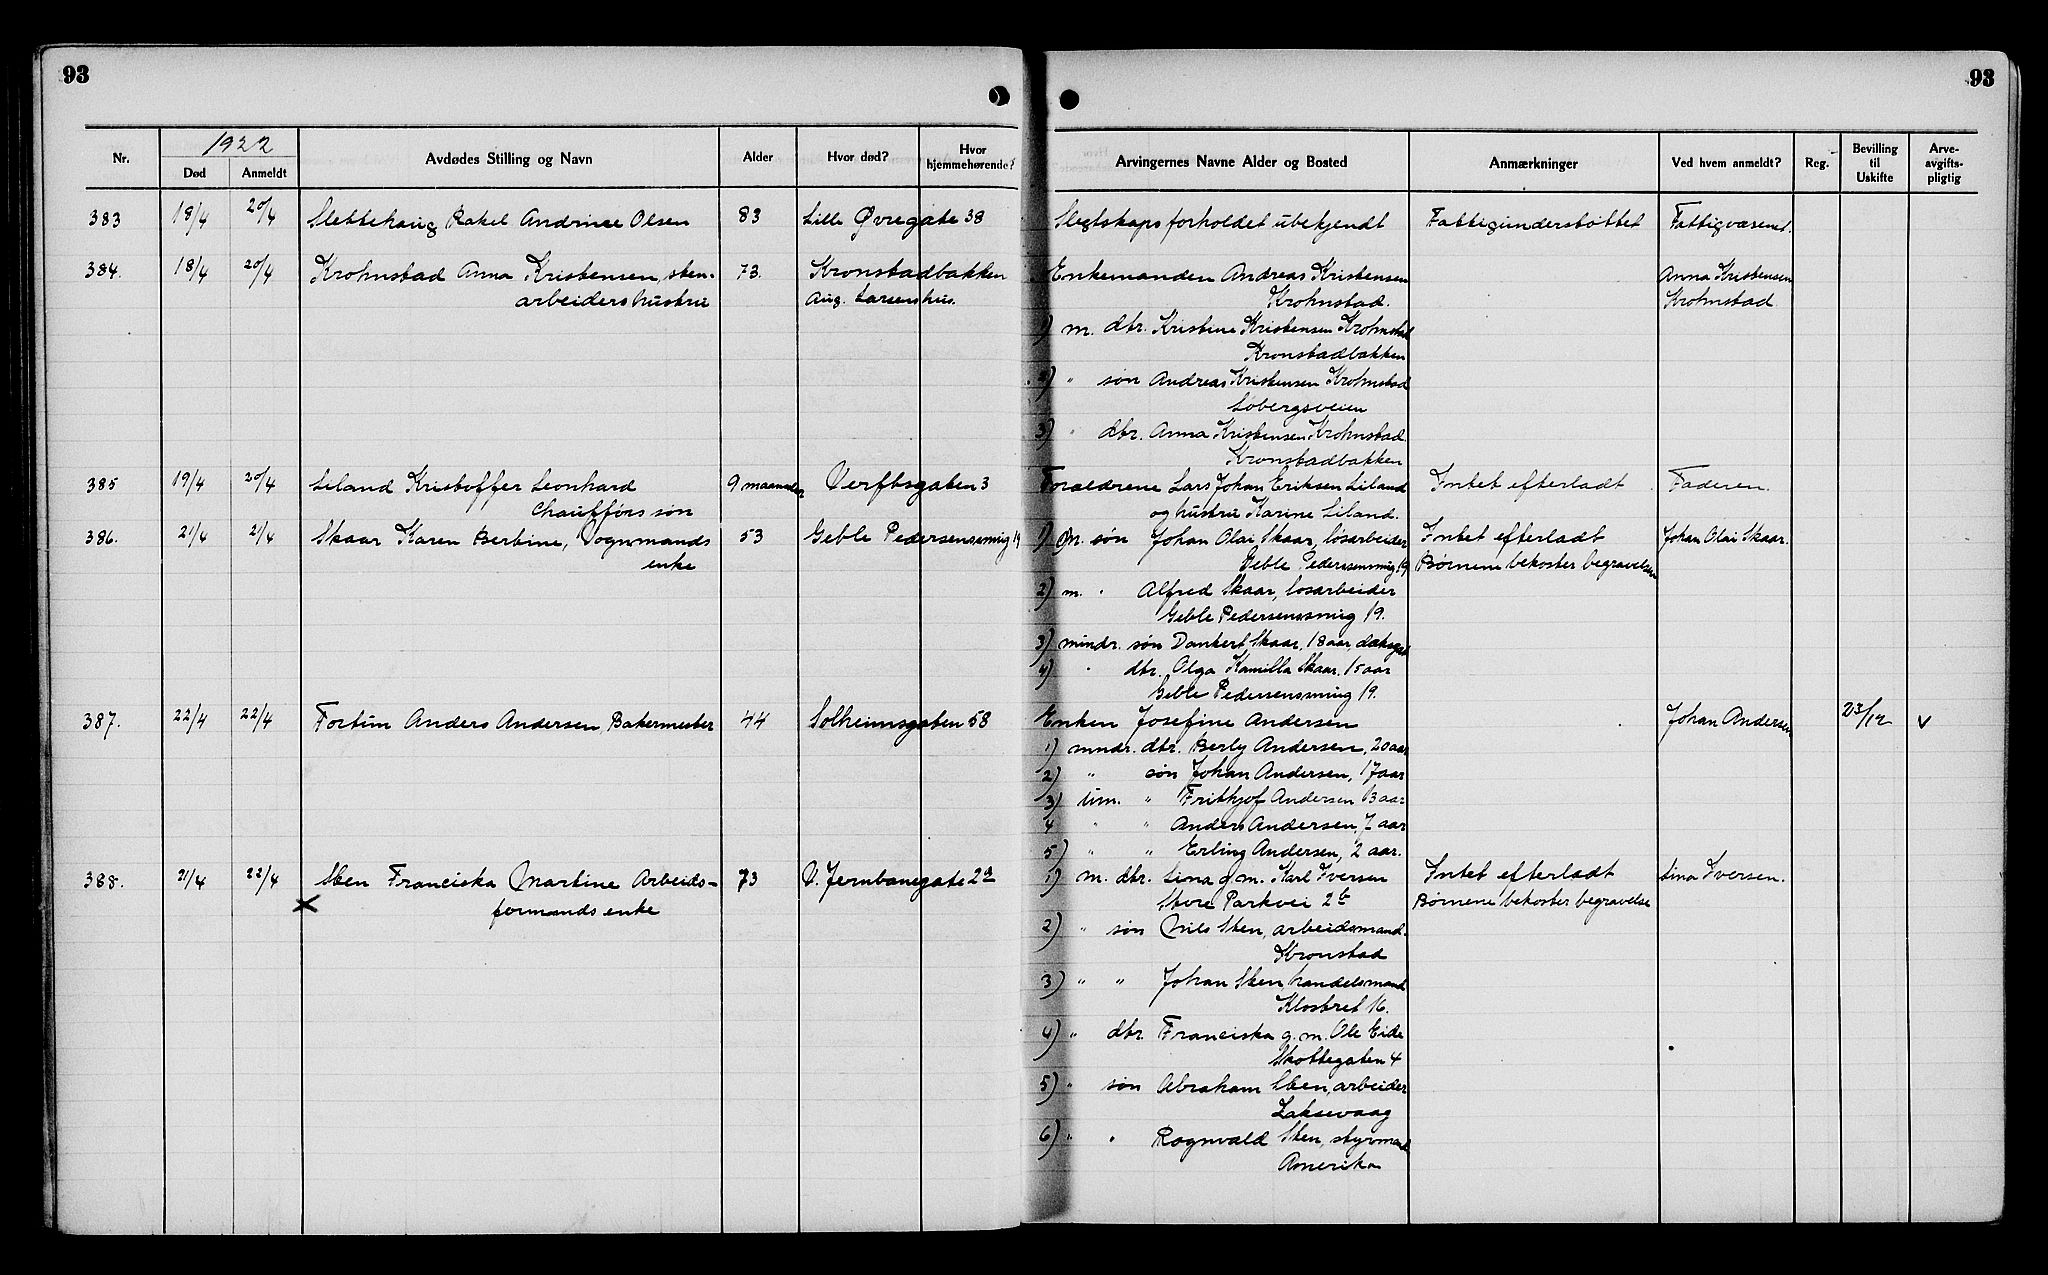 93
93
1922
Nr.
Død
Anmeldt
Avdødes Stilling og Navn
Alder
Hvor død?
Hvor hjemmehørende?
Arvingernes Navne Alder og Bosted
Anmærkninger
Ved hvem anmeldt?
Reg.
Bevilling til Uskifte
Arve-avgifts-pligtig
383 18/4 20/4 Slettehaug Rakel Andrine Olsen 83 Lille Øvregate 38 Slegtskapsforholdet ubekjendt Fattigunderstøttet Fattigvæsenet.
384. 18/4 20/4 Krohnstad Anna Kristensen, sten- 73. Kronstadbakken Enkemanden Andreas Kristensen Anna Kristensen
arbeiders hustru Aug. Larsens hus. Krohnstad. Krohnstad
1) m. dtr. Kristine Kristensen Krohnstad
Kronstadbakken
2) " søn Andreas Kristensen Krohnstad
Løbergsveien
3) " dtr. Anna Kristensen Krohnstad
Kronstadbakken
385 19/4 20/4 Liland Kristoffer Leonhard 9 maaneder Verftsgaten 3 Forældrene Lars Johan Eriksen Liland Intet efterladt Faderen.
Chaufførs søn og hustru Karine Liland.
386. 21/4 21/4 Skaar Karen Bertine, Vognmands 53 Geble Pedersensmug 19 1) m. søn Johan Olai Skaar, løsarbeider Intet efterladt Johan Olai Skaar.
enke Geble Pedersensmug 19 Børnene bekoster begravelsen
2) m. " Alfred Skaar, løsarbeider
Geble Pedersensmug 19.
3) mindr. søn Dankert Skaar, 18 aar, dæksgut
4) " dtr. Olga Kamilla Skaar. 15 aar
Geble Pedersensmug 19.
387. 22/4 22/4 Fortun Anders Andersen, Bakermester 44 Solheimsgaten 58 Enken Josefine Andersen Johan Andersen 23/12 v
1) mndr. dtr. Berly Andersen, 20 aar
2) " søn Johan Andersen, 17 aar
3) um. " Frithjof Andersen 13 aar
4 " " Anders Andersen, 7 aar
5) " " Erling Andersen, 2 aar.
388. 21/4 22/4 Sten Franciska Martine Arbeids- 73 V. Jernbanegate 2a 1) m. dtr. Lina g.m. Karl Iversen Intet efterladt Lina Iversen.
x formands enke Store Parkvei 2b Børnene bekoster begravelse
2) " søn Nils Sten, arbeidsmand.
Kronstad
3) " " Johan Sten, handelsmand
Klostret 16.
4) " dtr. Franciska g.m. Ole Eide
Skottegaten 4
5) " søn Abraham Sten, arbeider
Laksevaag
6) " " Rognvald Sten, styrmand
Amerika